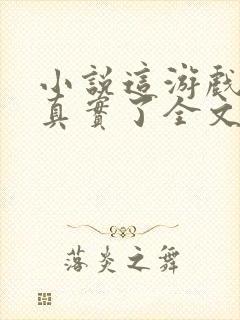 小說這游戲
真實了全文
落炎之舞